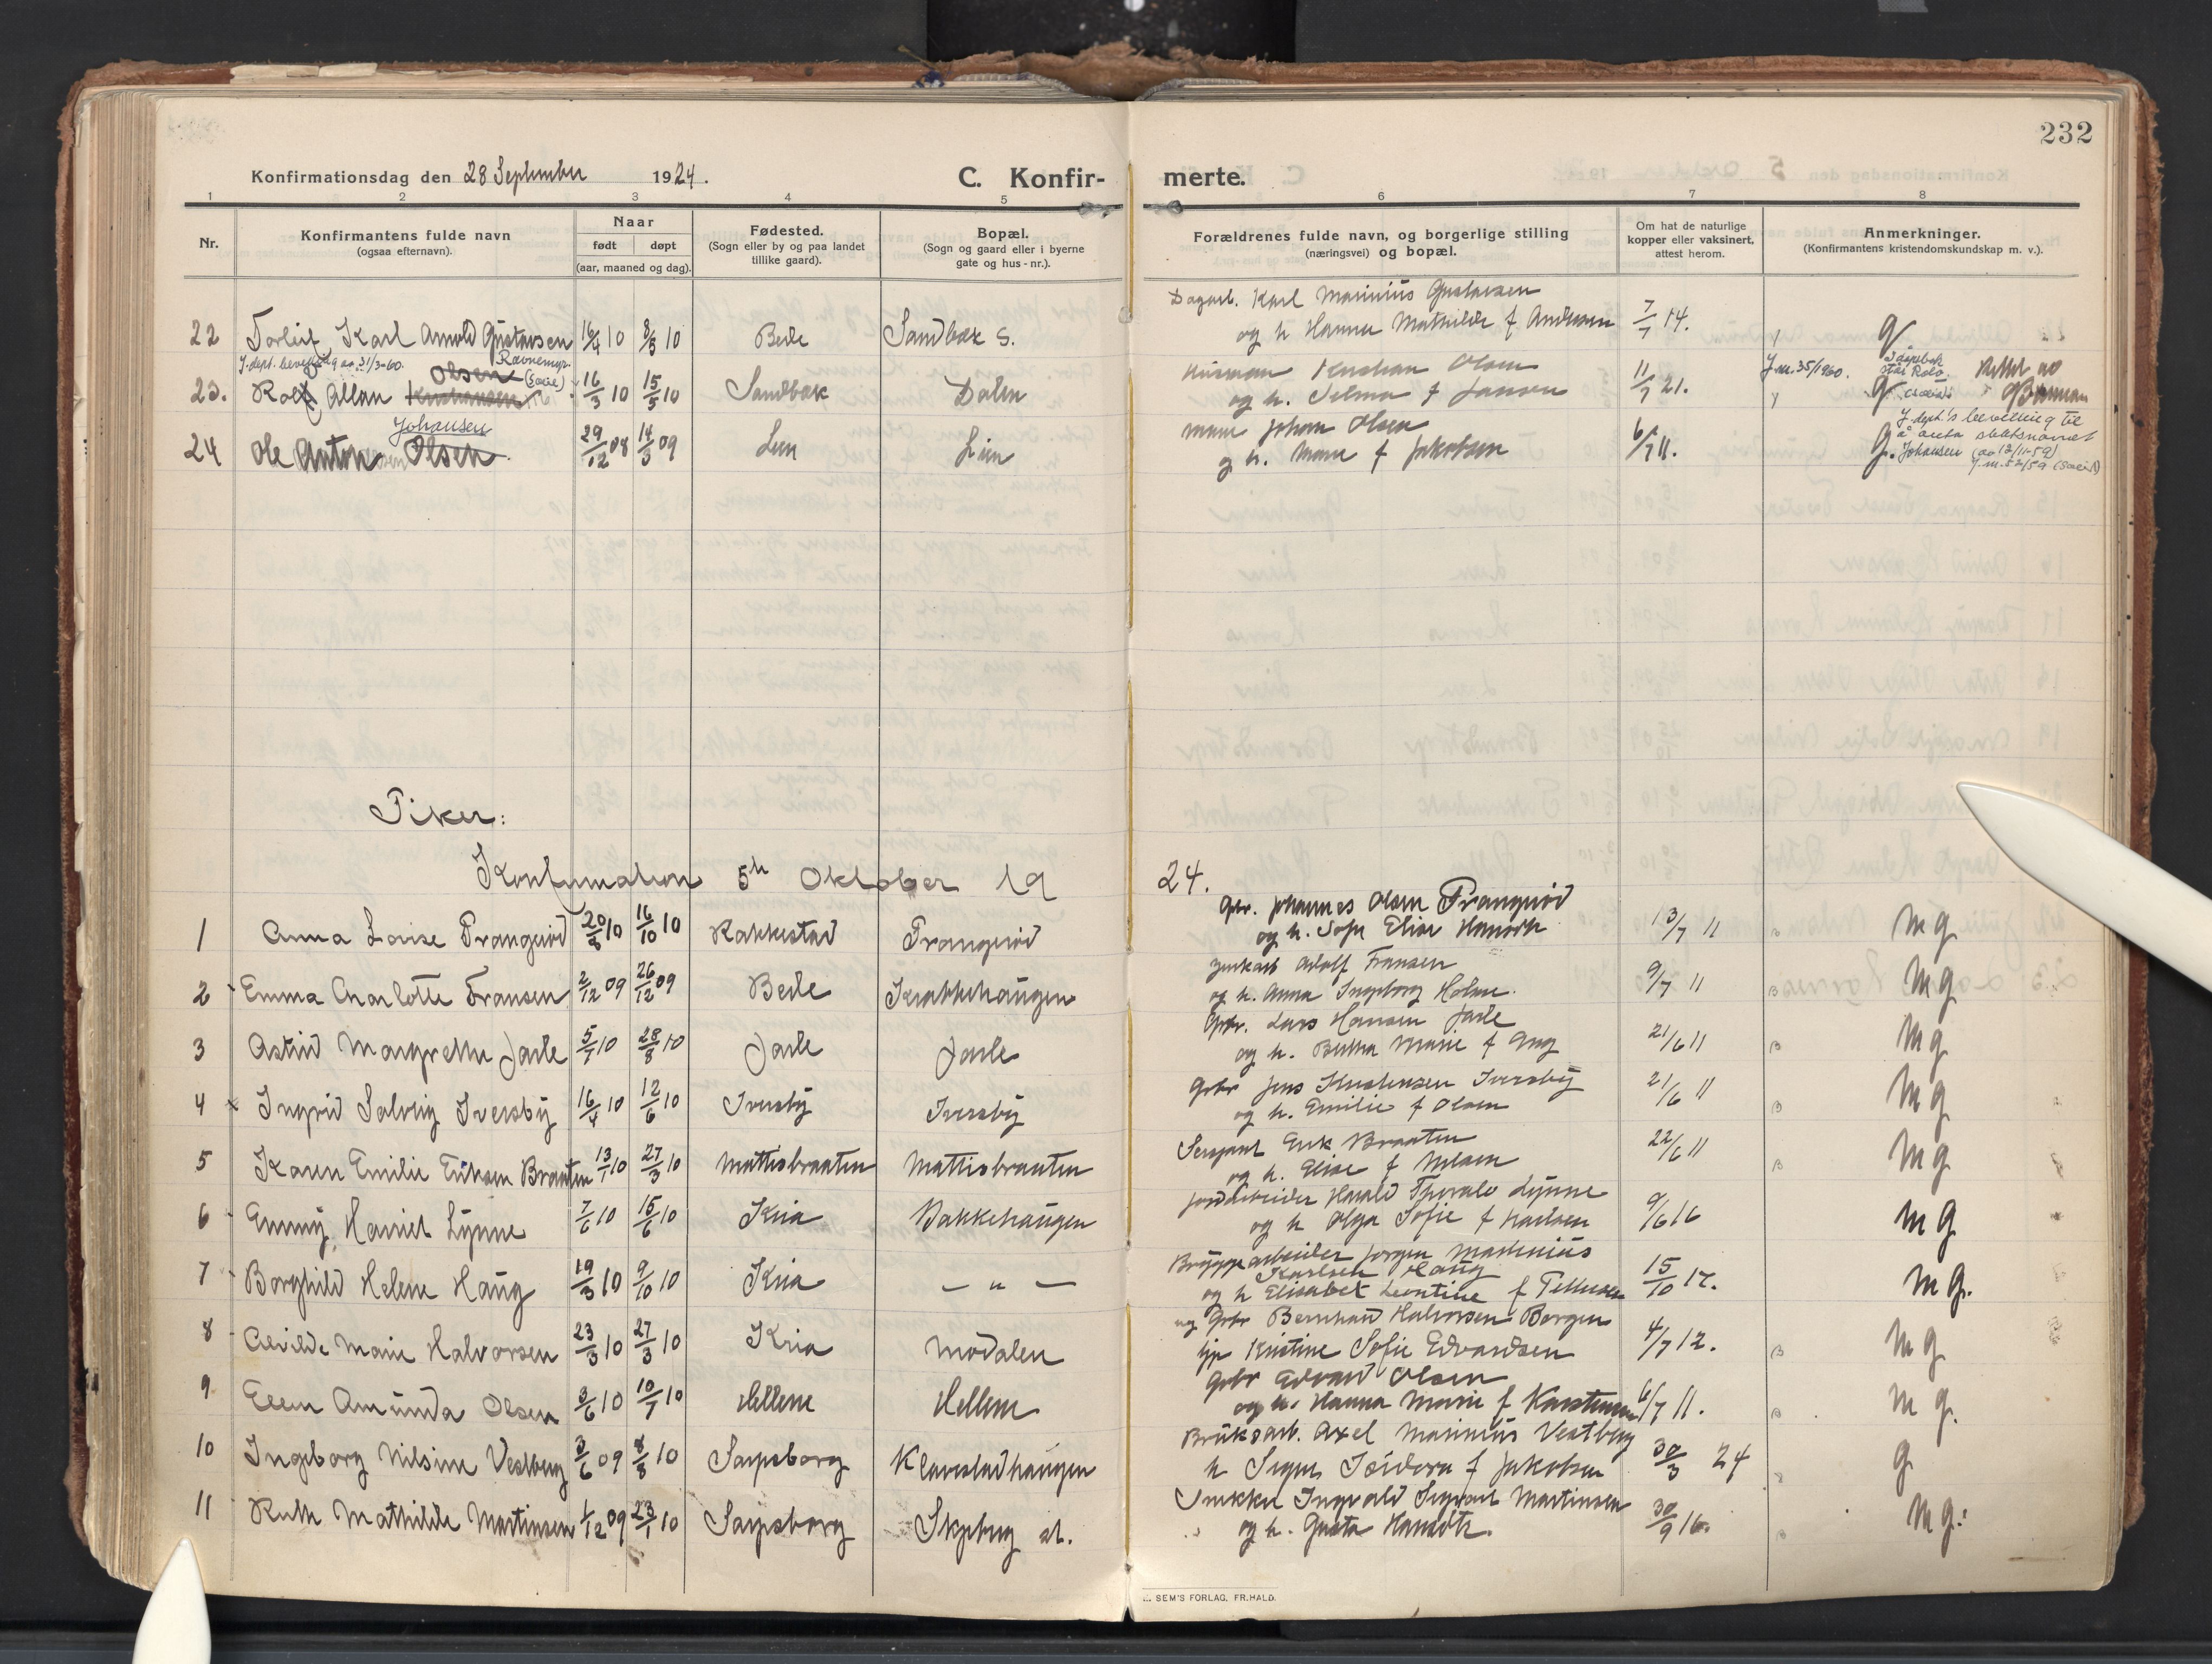 232
Konfirmationsdag den 28 September 1924.
C. Konfir- merte.
1 2 3 4 5 6 7 8
Nr.
Konfirmantens fulde navn
(ogsaa efternavn).
Naar
født døpt
(aar, maaned og dag).
Fødested.
(Sogn eller by og paa landet
tillike gaard).
Bopæl.
(Sogn og gaard eller i byerne
gate og hus-nr.).
Forældrenes fulde navn, og borgerlige stilling
(næringsvei) og bopæl.
Om hat de naturlige
kopper eller vaksinert,
attest herom.
Anmerkninger.
(Konfirmantens kristendomskundskap m. v.).
Dagarb. Karl Marinius Gustavsen
22 Torleif Karl Arnold Gustavsen 16/4 10 8/5 10 Bede Sandbæk S. og h Hanna Mathilde f Andersen 7/7 14. g
J.dept. bevilling av 31/3-60. Ravnemyr
Olsen
Husman Kristian Olsen J.nr. 35/1960.
23. Rolf Allan Kristiansen 16/3 10 15/5 10 Sandbæk Dalen og h. Selma f Jansen 11/7 21. g
Johansen
Murer Johan Olsen J. dept's bevilling til
å anta slektsnavnet
24 Ole Anton Olsen 29/12 08 14/3 09 Lien og h. Marie f Jakobsen 6/7 11. g. Johansen (av 12/11-59)
J.nr. 52/59
Piker:
Konfirmation 5te Oktober 19 24.
Gbr. Johannes Olsen Trangsrød
1 Anna Lovise Trangsrød 20/8 10 16/10 10 Rakkestad Trangsrød og h. Sofie Elise Hansdtr 13/7 11 Mg
Adolf Fransen
2 Emma Charlotte Fransen 2/12 09 26/12 09 Bede Krakkehaugen og h. Anna Ingeborg Holm. 9/7 11 Mg
Gbr. Lars Hansen Jarle
3 Astrid Margrethe Jarle 5/7 10 28/8 10 Jarle Jarle og h. Bertha Marie f Aug 21/6 11 Mg
Gbr Jens Kristensen Iversby
4 Ingrid Solveig Iversby 16/4 10 12/6 10 Iversby Iversby og h. Emilie f Olsen 21/6 11 Mg
Sersjant Erik Braaten
5 Karen Emilie Eriksen Braaten 13/1 10 27/3 10 Mattisbraaten Mattisbraaten og h. Elise f Nilsen 22/6 11 Mg
Jordarbeider Harald Thorvald Lynne
6 Emmy Harriet Lynne 7/6 10 15/6 10 Kria Bakkehaugen og h Olga Sofie f Karlsen 9/6 16 Mg
Bryggearbeider Jørgen Martinius
Karlsen Haug
7 Borghild Helene Haug 19/3 10 9/10 10 Kria — " — og h Elisabet Leontine f Tellefsen 15/10 17. Mg.
ug Gbr Bernhard Halvorsen Borgen
8 Alvilde Marie Halvorsen 23/3 10 27/3 10 Kria Modalen pp Kristine Sofie Edvardsen 4/7 12. Mg
Gbr Edvard Olsen
9 Ellen Amunda Olsen 3/6 10 10/7 10 Hellene Hellene og h. Hanna Marie f Karstensen 6/7 11. Mg.
Bruksarb. Axel Marinius Vestberg
10 Ingeborg Nilsine Vestberg 3/6 09 8/8 10 Sarpsborg Klavestadhaugen h Signe Isidora f Jakobsen 30/3 24 g
Snekker Ingvald Sigvart Martinsen
11 Ruth Mathilde Martinsen 1/12 09 23/1 10 Sarpsborg Skjeberg st. og h. Gusta Hansdtr. 30/9 16. Mg.
SEM'S FORLAG, FR.HALD.